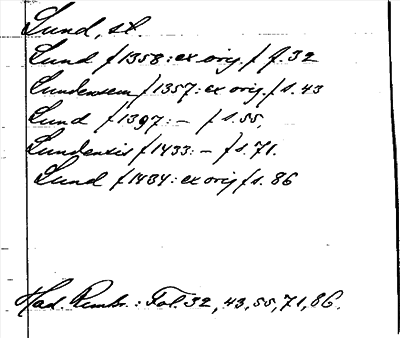 Lund, st.
Lund /1358: ex orig./ s. 32
Lundensem /1357: ex orig./ s. 43
Lund /1397: – / s. 55.
Lundensis /1433: – / s. 71.
Lund /1484: ex orig/ s. 86
Had. Rembr.: Fol. 32, 43, 55, 71, 86.